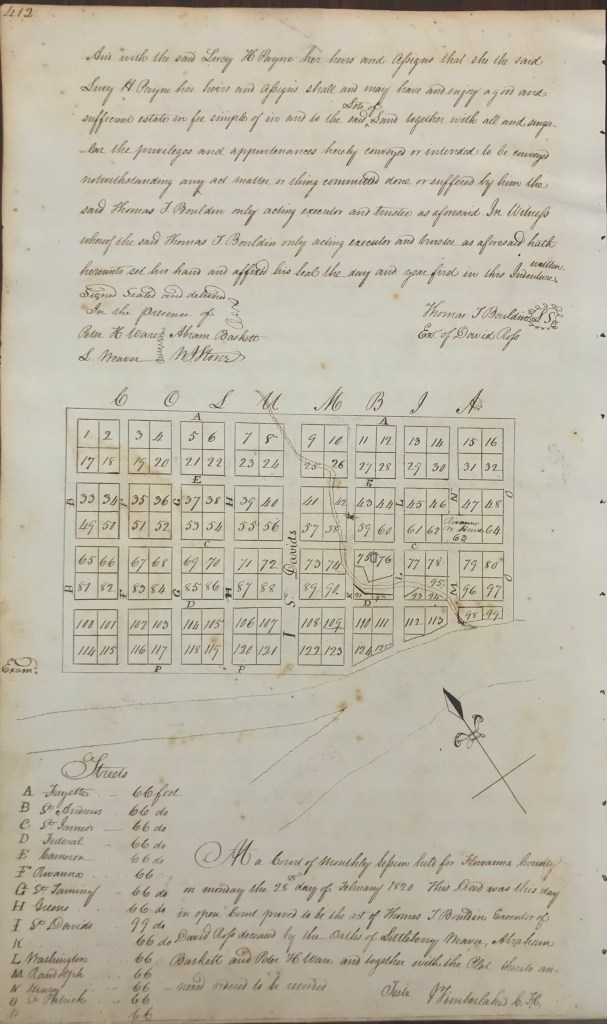 412
And with the said Lucy H Payne her heirs and Assigns that she the said
Lucy H Payne her heirs and Assigns shall and may have and enjoy a good and
sufficient estate in fee simple of in and to the said Lots of Land together with all and singu
-lar the privileges and appurtenances hereby conveyed or intended to be conveyed
notwithstanding any act matter or thing committed done or suffered by him the
said Thomas T Bouldin only acting executor and trustee as aforesaid In Witness
whereof the said Thomas T Bouldin only acting executor and trustee as aforesaid hath
hereunto set his hand and affixed his seal the day and year first in this Indenture written
Signed Sealed and delivered
In the presence of
Peter H Ware Abram Baskett
L Weaver W J Stone
Thomas T Bouldin L S
Ex. of David Ross
C O L U M B I A
A A
1 2 3 4 5 6 7 8 9 10 11 12 13 14 15 16
17 18 19 20 21 22 23 24 25 26 27 28 29 30 31 32
E E
B F G H K L N O
33 34 35 36 37 38 39 40 41 42 43 44 45 46 47 48
49 50 51 52 53 54 55 56 57 58 59 60 61 62 63 64
Rivanna W House
C C
St Davids
65 66 67 68 69 70 71 72 73 74 75 76 77 78 79 80
81 82 83 84 85 86 87 88 89 90 91 92 93 94 95 96 97
H F G H K L M O
D D
98 99
100 101 102 103 104 105 106 107 108 109 110 111 112 113
114 115 116 117 118 119 120 121 122 123 124 125
I
P P
Exam.
Streets
A Fayette 66 feet
B St Andrews 66 do
C St James 66 do
D Federal 66 do
E Cameron 66 do
F Rivanna 66
G St Taminy 66 do
H Greene 66 do
I St Davids 99 do
K 66 do
L Washington 66
M Randolph 66
N Henry 66
O St Patrick 66
P 66
At a Court of Monthly Session held for Fluvanna County
on monday the 28th day of February 1820 This Deed was this day
in open Court proved to be the act of Thomas T Bouldin Executor of
David Ross deceased by the Oaths of Littleberry Weaver, Abraham
Baskett and Peter H Ware and together with the Plat thereto an-
-nexed ordered to be recorded
Teste J Timberlake C. F. C.